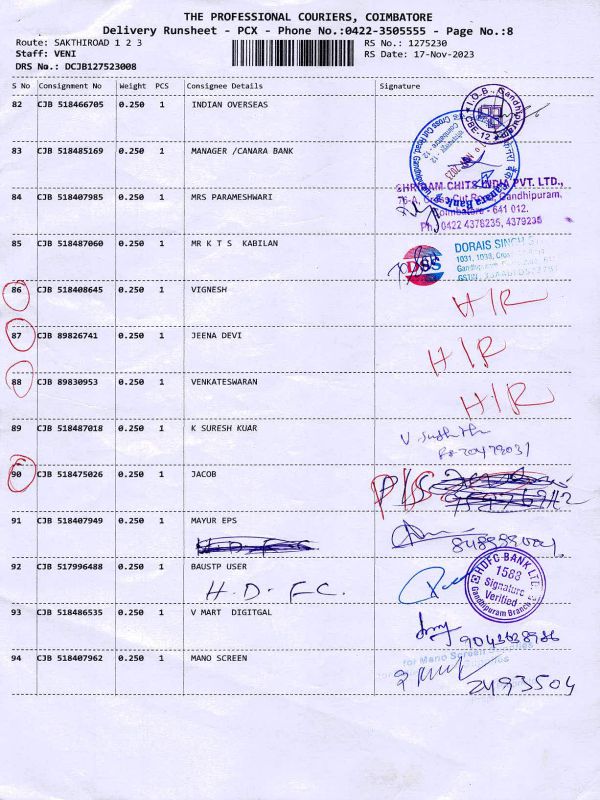 THE PROFESSIONAL COURIERS, COIMBATORE
Delivery Runsheet - PCX - Phone No.:0422-3505555 - Page No.:8
Route: SAKTHIROAD 1 2 3 RS No.: 1275230
Staff: VENI RS Date: 17-Nov-2023
DRS No.: DCJB127523008
S No Consignment No Weight PCS Consignee Details Signature
82 CJB 518466705 0.250 1 INDIAN OVERSEAS
I.O.B., Gandhipuram CBE-12
83 CJB 518485169 0.250 1 MANAGER /CANARA BANK
Canara Bank
84 CJB 518407985 0.250 1 MRS PARAMESHWARI
SHRIRAM CHITS INDIA PVT. LTD.,
76-A, Cross Cut Road, Gandhipuram,
Coimbatore - 641 012.
Ph: 0422 4378235, 4379235
85 CJB 518487060 0.250 1 MR K T S KABILAN
DSS
DORAIS SINGH
1031, 1038, Cross
86 CJB 518408645 0.250 1 VIGNESH
H/R
87 CJB 89826741 0.250 1 JEENA DEVI
H/R
88 CJB 89830953 0.250 1 VENKATESWARAN
H/R
89 CJB 518487018 0.250 1 K SURESH KUAR
90 CJB 518475026 0.250 1 JACOB
91 CJB 518407949 0.250 1 MAYUR EPS
92 CJB 517996488 0.250 1 BAUSTP USER
H.D.F.C.
HDFC BANK LTD.
1583
Signature
Verified
Gandhipuram Branch
93 CJB 518486535 0.250 1 V MART DIGITGAL
9043638986
94 CJB 518407962 0.250 1 MANO SCREEN
for Mano Screen Supplies
2493504